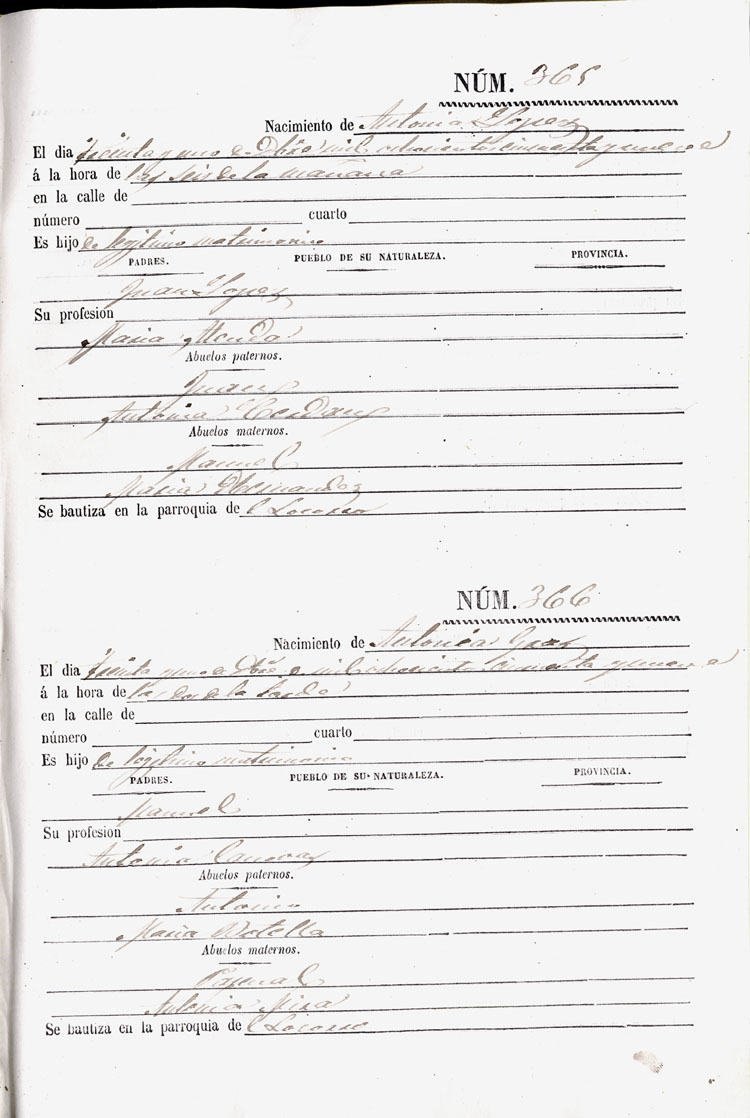 NÚM. 365
Nacimiento de Antonia Lopez
El dia treinta y uno de Dbre mil ochocientos cincuenta y nueve
á la hora de las seis de la mañana
en la calle de
número cuarto
Es hijo de legitimo matrimonio
PADRES. PUEBLO DE SU NATURALEZA. PROVINCIA.
Juan Lopez
Su profesion
Maria
Abuelos paternos.
Juan
Antonia
Abuelos maternos.
Manuel
Maria Hernandez
Se bautiza en la parroquia de l Socorro
NÚM. 366
Nacimiento de Antonia
El dia treinta y uno de Dbre de mil ochocientos cincuenta y nueve
á la hora de las dos de la tarde
en la calle de
número cuarto
Es hijo de legitimo matrimonio
PADRES. PUEBLO DE SU NATURALEZA. PROVINCIA.
Manuel
Su profesion
Antonia Canovas
Abuelos paternos.
Antonio
Maria Botella
Abuelos maternos.
Pascual
Antonia Mira
Se bautiza en la parroquia de l Socorro